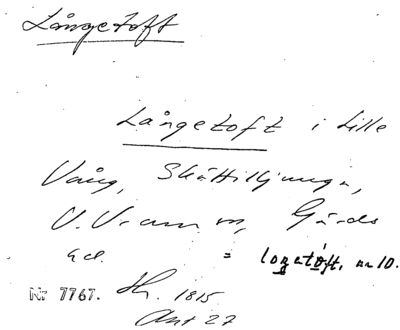 Långetoft
Långetoft i Lille
Vång, Skättiljunga,
V. Vram m, Gärds
hd. = logatoft, nr 10.
Nr 7767. Sk. 1815
Akt 27